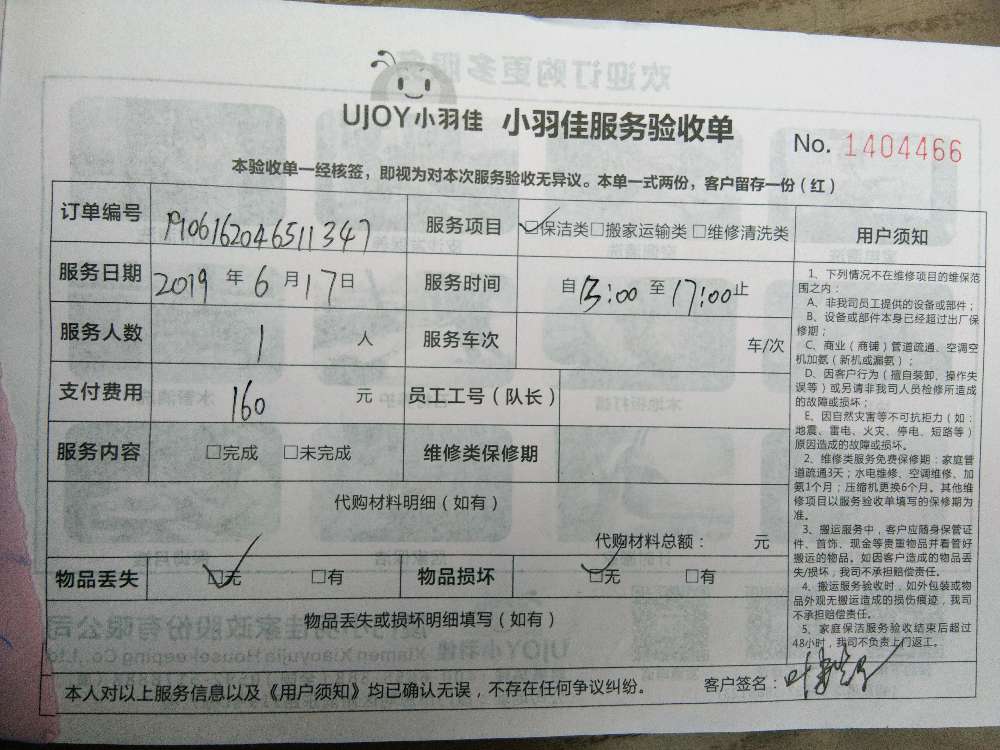 UJOY小羽佳 小羽佳服务验收单
No. 1404466
本验收单一经核签，即视为对本次服务验收无异议。本单一式两份，客户留存一份（红）
订单编号 P106162046511347 服务项目 ☑保洁类□搬家运输类□维修清洗类
服务日期 2019年6月17日 服务时间 自13:00至17:00止
服务人数 1人 服务车次 车/次
支付费用 160元 员工工号（队长）
服务内容 □完成 □未完成 维修类保修期
代购材料明细（如有）
代购材料总额： 元
物品丢失 ☑无 □有 物品损坏 ☑无 □有
物品丢失或损坏明细填写（如有）
本人对以上服务信息以及《用户须知》均已确认无误，不存在任何争议纠纷。 客户签名：
用户须知
1、下列情况不在维修项目的维保范
围之内：
A、非我司员工提供的设备或部件；
B、设备或部件本身已经超过出厂保
修期；
C、商业（商铺）管道疏通、空调空
机加氨（新机或漏氨）；
D、因客户行为（擅自装卸、操作失
误等）或另请非我司人员检修所造成
的故障或损坏；
E、因自然灾害等不可抗拒力（如：
地震、雷电、火灾、停电、短路等）
原因造成的故障或损坏。
2、维修类服务免费保修期：家庭管
道疏通3天；水电维修、空调维修、加
氨1个月；压缩机更换6个月。其他维
修项目以服务验收单填写的保修期为
准。
3、搬运服务中，客户应随身保管证
件、首饰、现金等贵重物品并看管好
搬运的物品。如因客户造成的物品丢
失/损坏，我司不承担赔偿责任。
4、搬运服务验收时，如外包装或物
品外观无搬运造成的损伤痕迹，我司
不承担赔偿责任。
5、家庭保洁服务验收结束后超过
48小时，我司不负责上门返工。